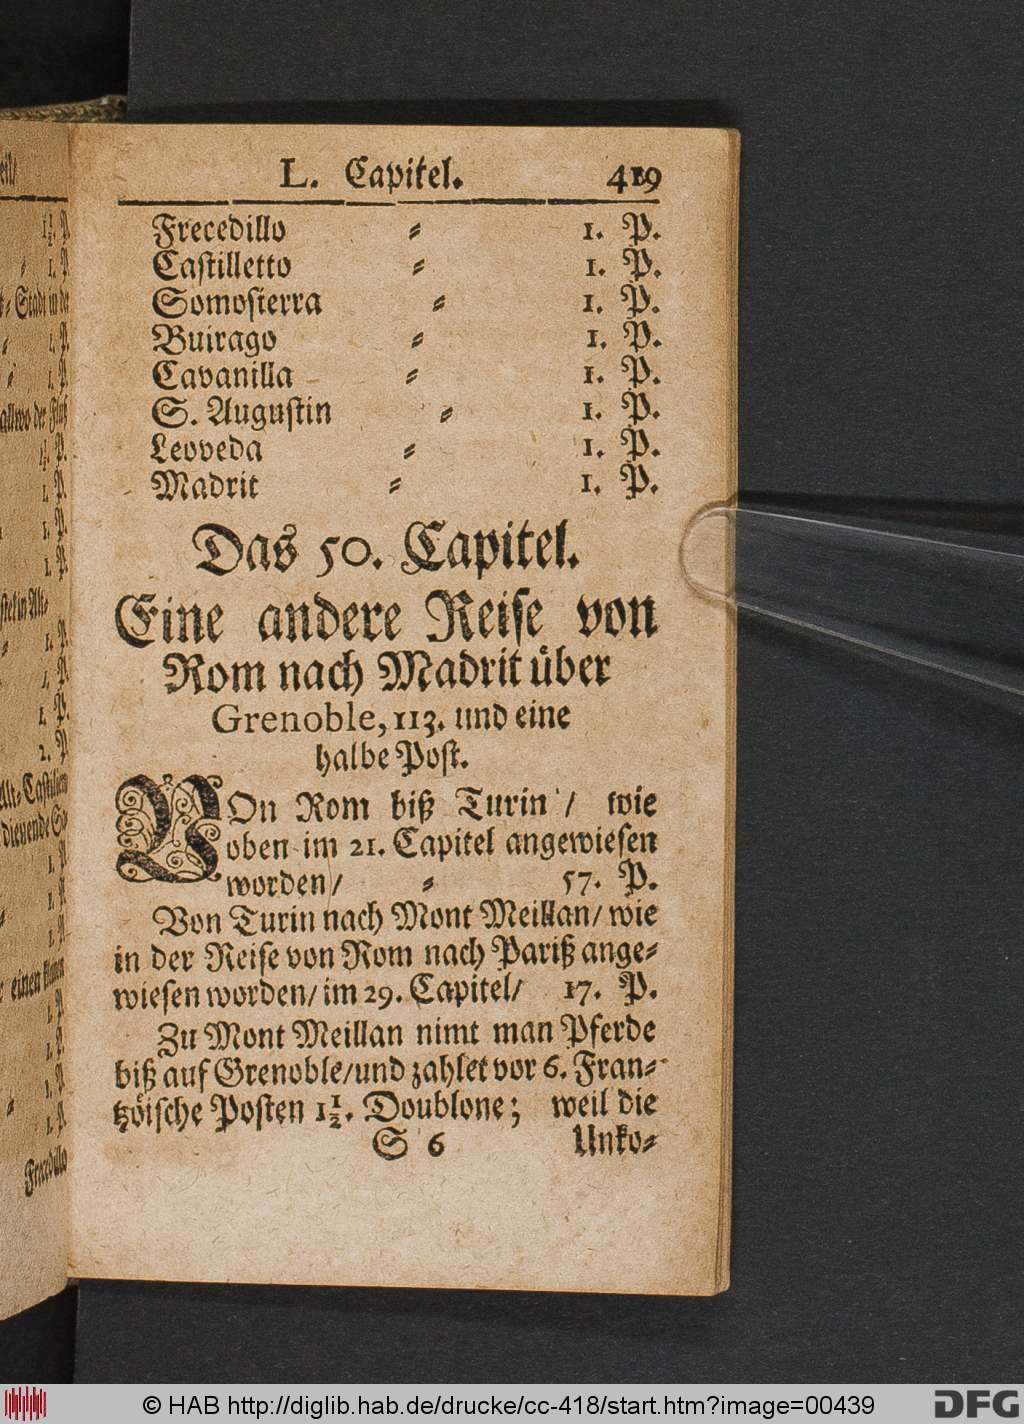 L. Capitel. 419
Frecedillo ⸗ 1. P.
Castilletto ⸗ 1. P.
Somosierra ⸗ 1. P.
Buirago ⸗ 1. P.
Cavanilla ⸗ 1. P.
S. Augustin ⸗ 1. P.
Leoveda ⸗ 1. P.
Madrit ⸗ 1. P.
Das 50. Capitel.
Eine andere Reise von
Rom nach Madrit über
Grenoble, 113. und eine
halbe Post.
VOn Rom biß Turin / wie
oben im 21. Capitel angewiesen
worden/ ⸗ 57. P.
Von Turin nach Mont Meillan/ wie
in der Reise von Rom nach Pariß ange⸗
wiesen worden/ im 29. Capitel/ 17. P.
Zu Mont Meillan nimt man Pferde
biß auf Grenoble/und zahlet vor 6. Fran⸗
tzöische Posten 1½. Doublone; weil die
S 6 Unko⸗
© HAB http://diglib.hab.de/drucke/cc-418/start.htm?image=00439
DFG